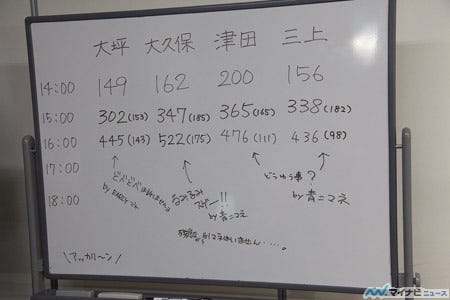 大坪 大久保 津田 三上
14:00 149 162 200 156
15:00 302(153) 347(185) 365(165) 338(182)
16:00 445(143) 522(175) 476(111) 436(98)
17:00
18:00
どべどべ
by
るみるみ
!!
by 青二マネ
どうゆう事?
by 青二マネ
いません……。
アッカリ〜ン
マイナビニュース